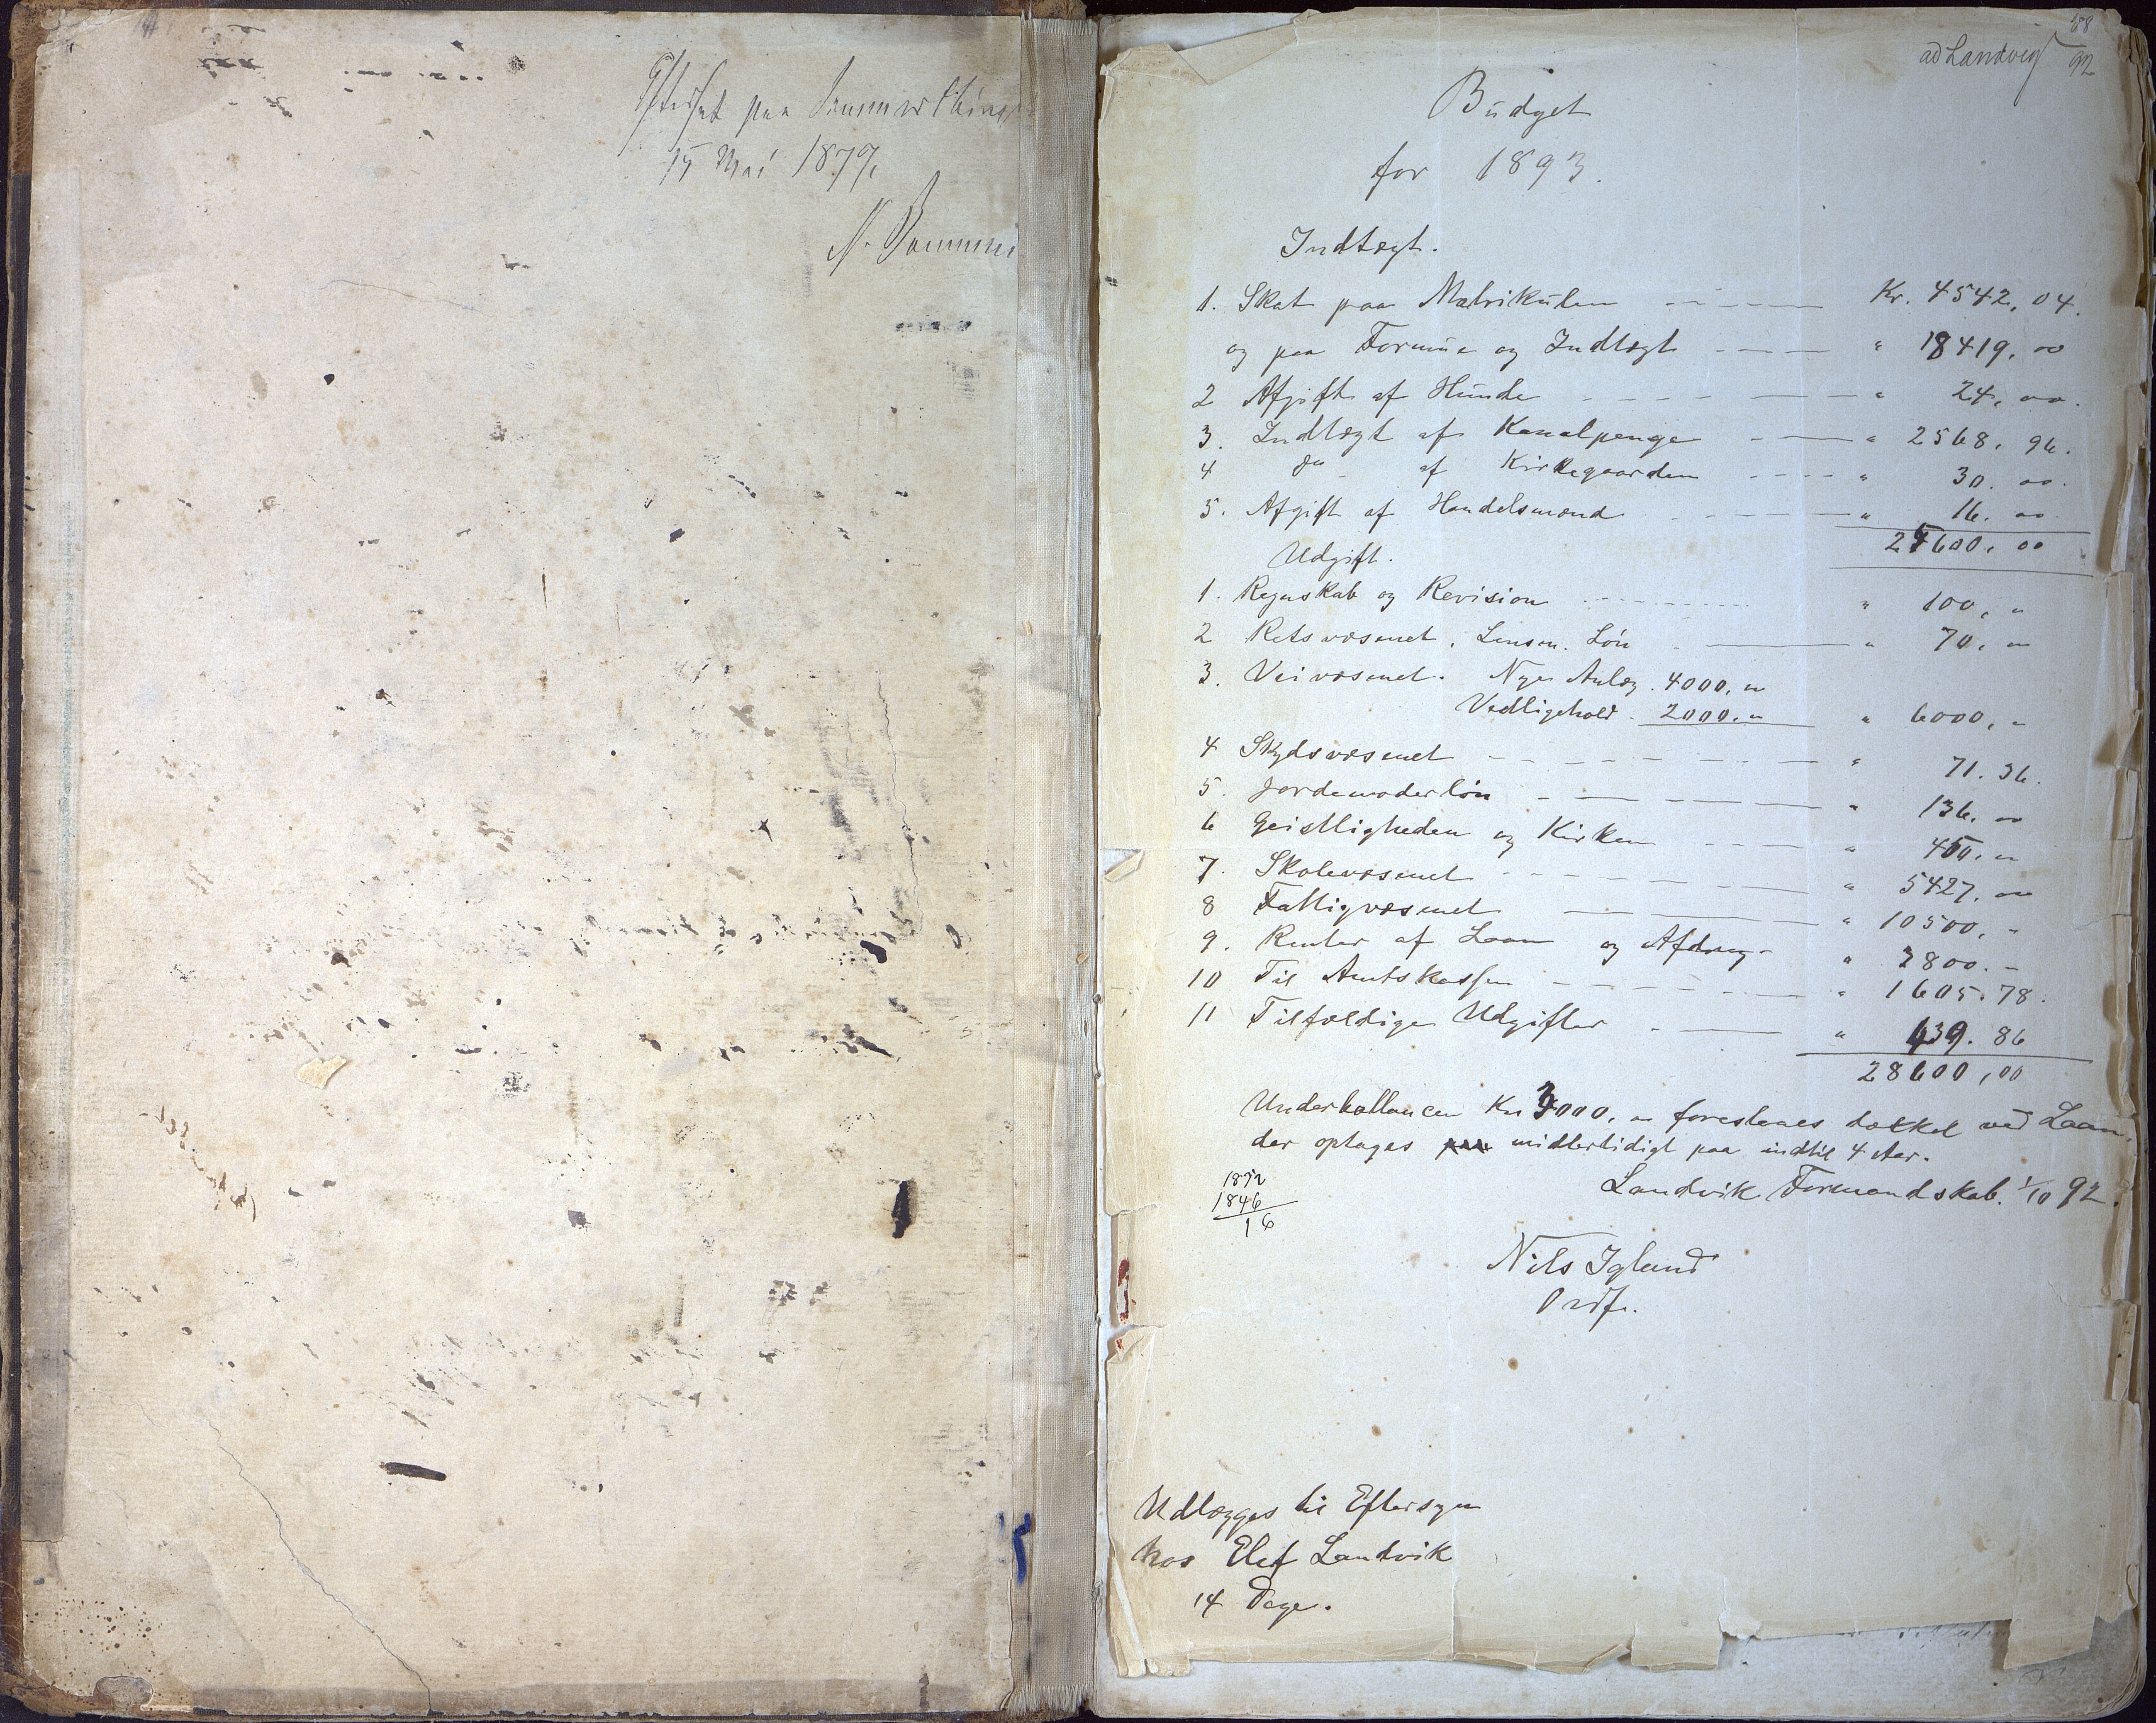 Efterset paa Sommerthing
15 Mai 1879.
N.
58
ad Landvig 92
Budget
for 1893.
Indtægt.
1. Skat paa Matrikulen Kr. 4542,04.
og paa Formue og Indtægt " 18419,00
2 Afgift af Hunde " 24,00.
3. Indtægt af Kanalpenge " 2568,96.
4 do af Kirkegaarden " 30.00.
5. Afgift af Handelsmænd " 16.00
25600,00
Udgift.
1. Regnskab og Revision " 100,"
2 Retsvæsenet, Lensm. Løn " 70,"
3. Veivæsenet. Nye Anlæg. 4000,"
Vedligehold. 2000," " 6000,"
4 Skydsvæsenet " 71.36.
5. Jordemoderløn " 136.00
6 Geistligheden og Kirken " 450,"
7. Skolevæsenet " 5427,"
8 Fattigvæsenet " 10500,"
9. Renter af Laan og Afdrag " 3800.-
10 Til Amtskassen " 1605.78.
11 Tilfældige Udgifter " 439.86
28600,00
Underballancen Kr 3000," foreslaaes dækket ved Laan,
der optages midlertidigt paa indtil 4 Aar.
1892
1846
16
Landvik Formandskab. 1/10 92.
Nils Igland
Ordf.
Udlægges til Eftersyn
hos Elef Landvik
14 Dage.